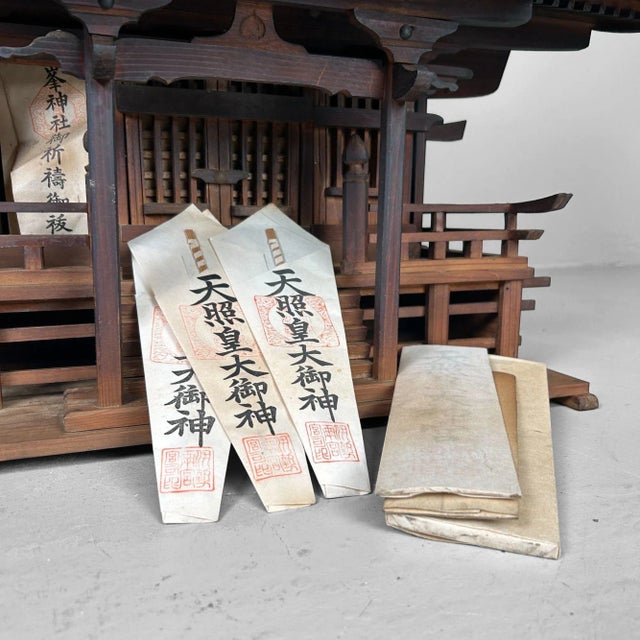 峯神社御祈禱御祓
大御神
天照皇大御神
天照皇大御神